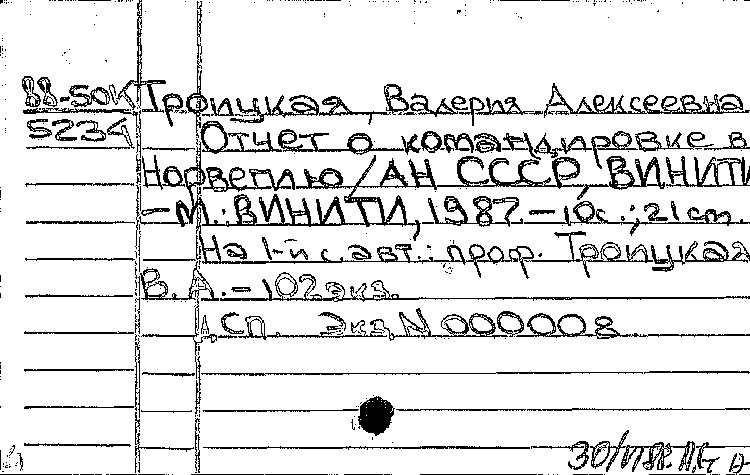 88-50К Троицкая, Валерия Алексеевна
5234 Отчет о командировке в
Норвегию / АН СССР, ВИНИТИ
– М.: ВИНИТИ, 1987. – 10с.; 21 cm.
На 1-й с. авт.: проф. Троицкая
В. А. – 102 экз.
ДСП. Экз. N 000008